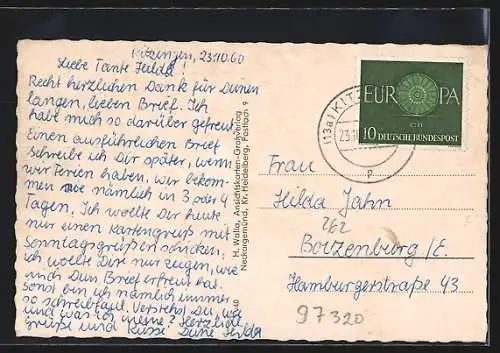 Kitzingen, 23.10.60
Liebe Tante Hilda!
Recht herzlichen Dank für Deinen
langen, lieben Brief. Ich
habe mich so darüber gefreut
Einen ausführlichen Brief
schreibe ich Dir später, wenn
wir Ferien haben. Wir bekom-
men sie nämlich in 3 oder 4
Tagen. Ich wollte Dir heute
nur einen Kartengruß mit
Sonntagsgrüßen schicken,
ich wollte Dir nur zeigen, wie
mich Dein Brief erfreut hat.
Sonst bin ich nämlich immer
so schreibfaul. Verstehst Du wie
und was ich meine? Herzliche
Grüße und Küsse Deine Hilda
H. Walla, Ansichtskarten-Großverlag
Neckargemünd, Kr. Heidelberg, Postfach 9
EUROPA
CEPT
10 DEUTSCHE BUNDESPOST
(13a) KITZ
23.10
P
Frau
Hilda Jahn
262
Boizenburg/E.
Hamburgerstraße 43
97320